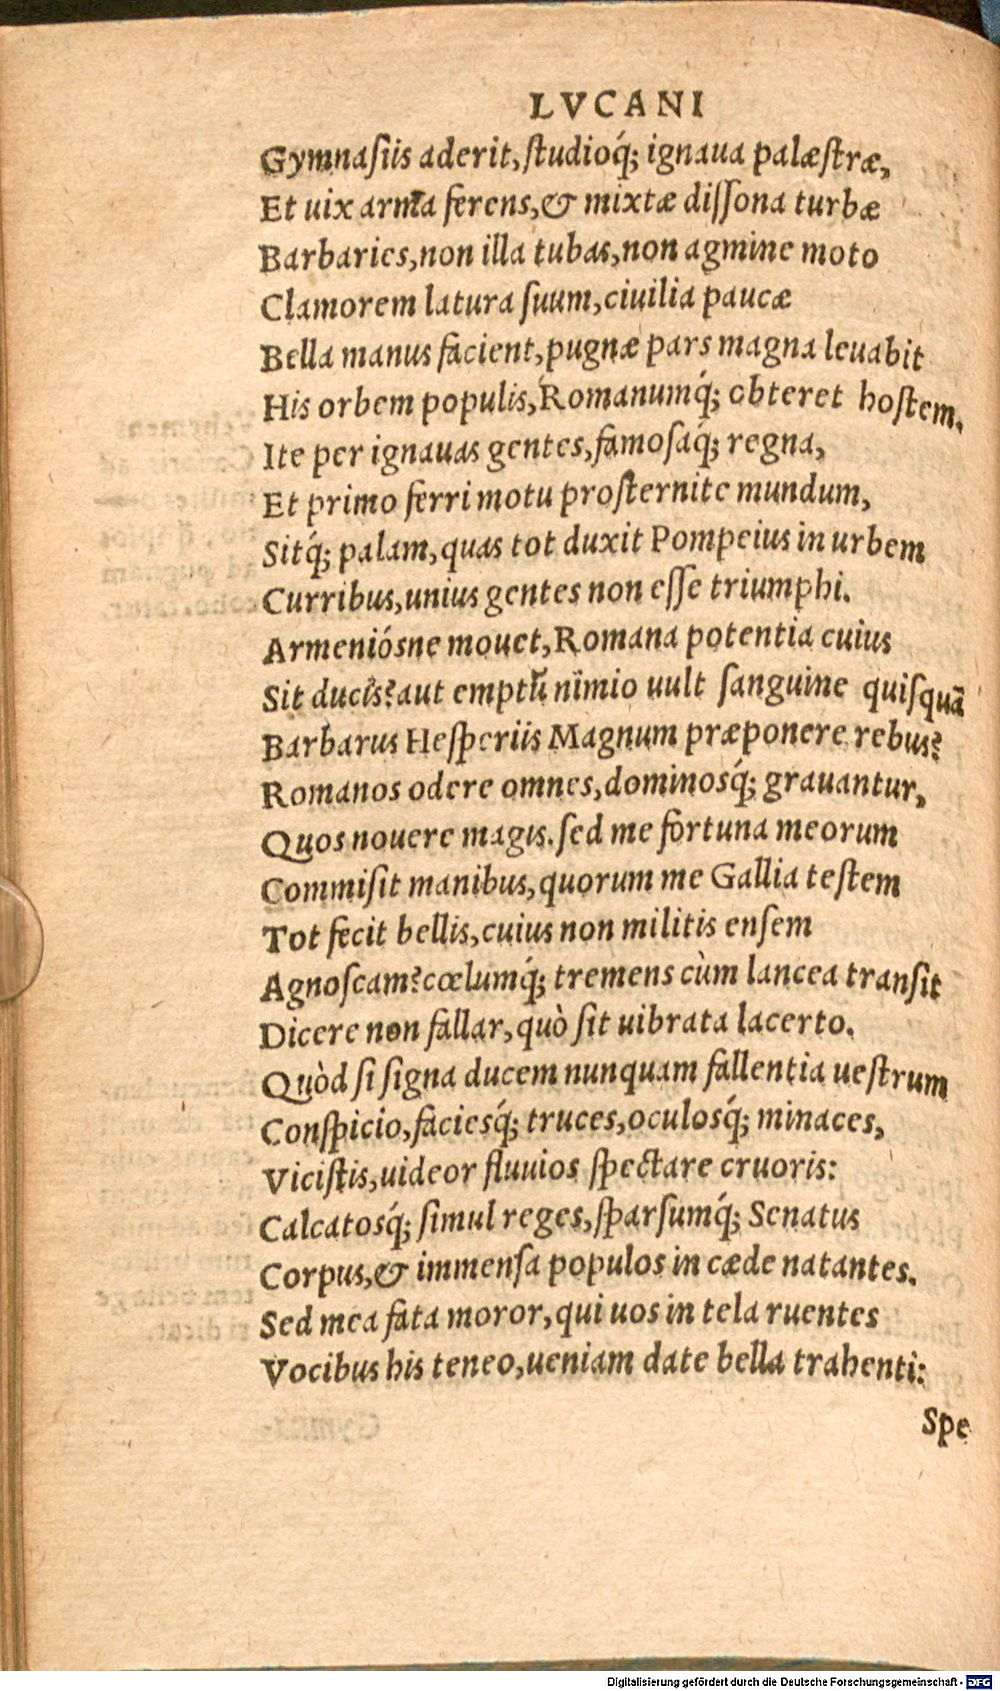 LVCANI
Gymnasiis aderit, studioq́; ignaua palæstræ,
Et uix arma ferens, & mixtæ dissona turbæ
Barbaries, non illa tubas, non agmine moto
Clamorem latura suum, ciuilia paucæ
Bella manus facient, pugnæ pars magna leuabit
His orbem populis, Romanumq́; obteret hostem.
Ite per ignauas gentes, famosaq́; regna,
Et primo ferri motu prosternite mundum,
Sitq́; palam, quas tot duxit Pompeius in urbem
Curribus, unius gentes non esse triumphi.
Armeniósne mouet, Romana potentia cuius
Sit ducis? aut emptũ nimio uult sanguine quisquã
Barbarus Hesperiis Magnum præponere rebus?
Romanos odere omnes, dominosq́; grauantur,
Quos nouere magis. sed me fortuna meorum
Commisit manibus, quorum me Gallia testem
Tot fecit bellis, cuius non militis ensem
Agnoscam? cœlumq́; tremens cùm lancea transit
Dicere non fallar, quò sit uibrata lacerto.
Quòd si signa ducem nunquam fallentia uestrum
Conspicio, faciesq́; truces, oculosq́; minaces,
Vicistis, uideor fluuios spectare cruoris:
Calcatosq́; simul reges, sparsumq́; Senatus
Corpus, & immensa populos in cæde natantes.
Sed mea fata moror, qui uos in tela ruentes
Vocibus his teneo, ueniam date bella trahenti:
Spe
Digitalisierung gefördert durch die Deutsche Forschungsgemeinschaft - DFG